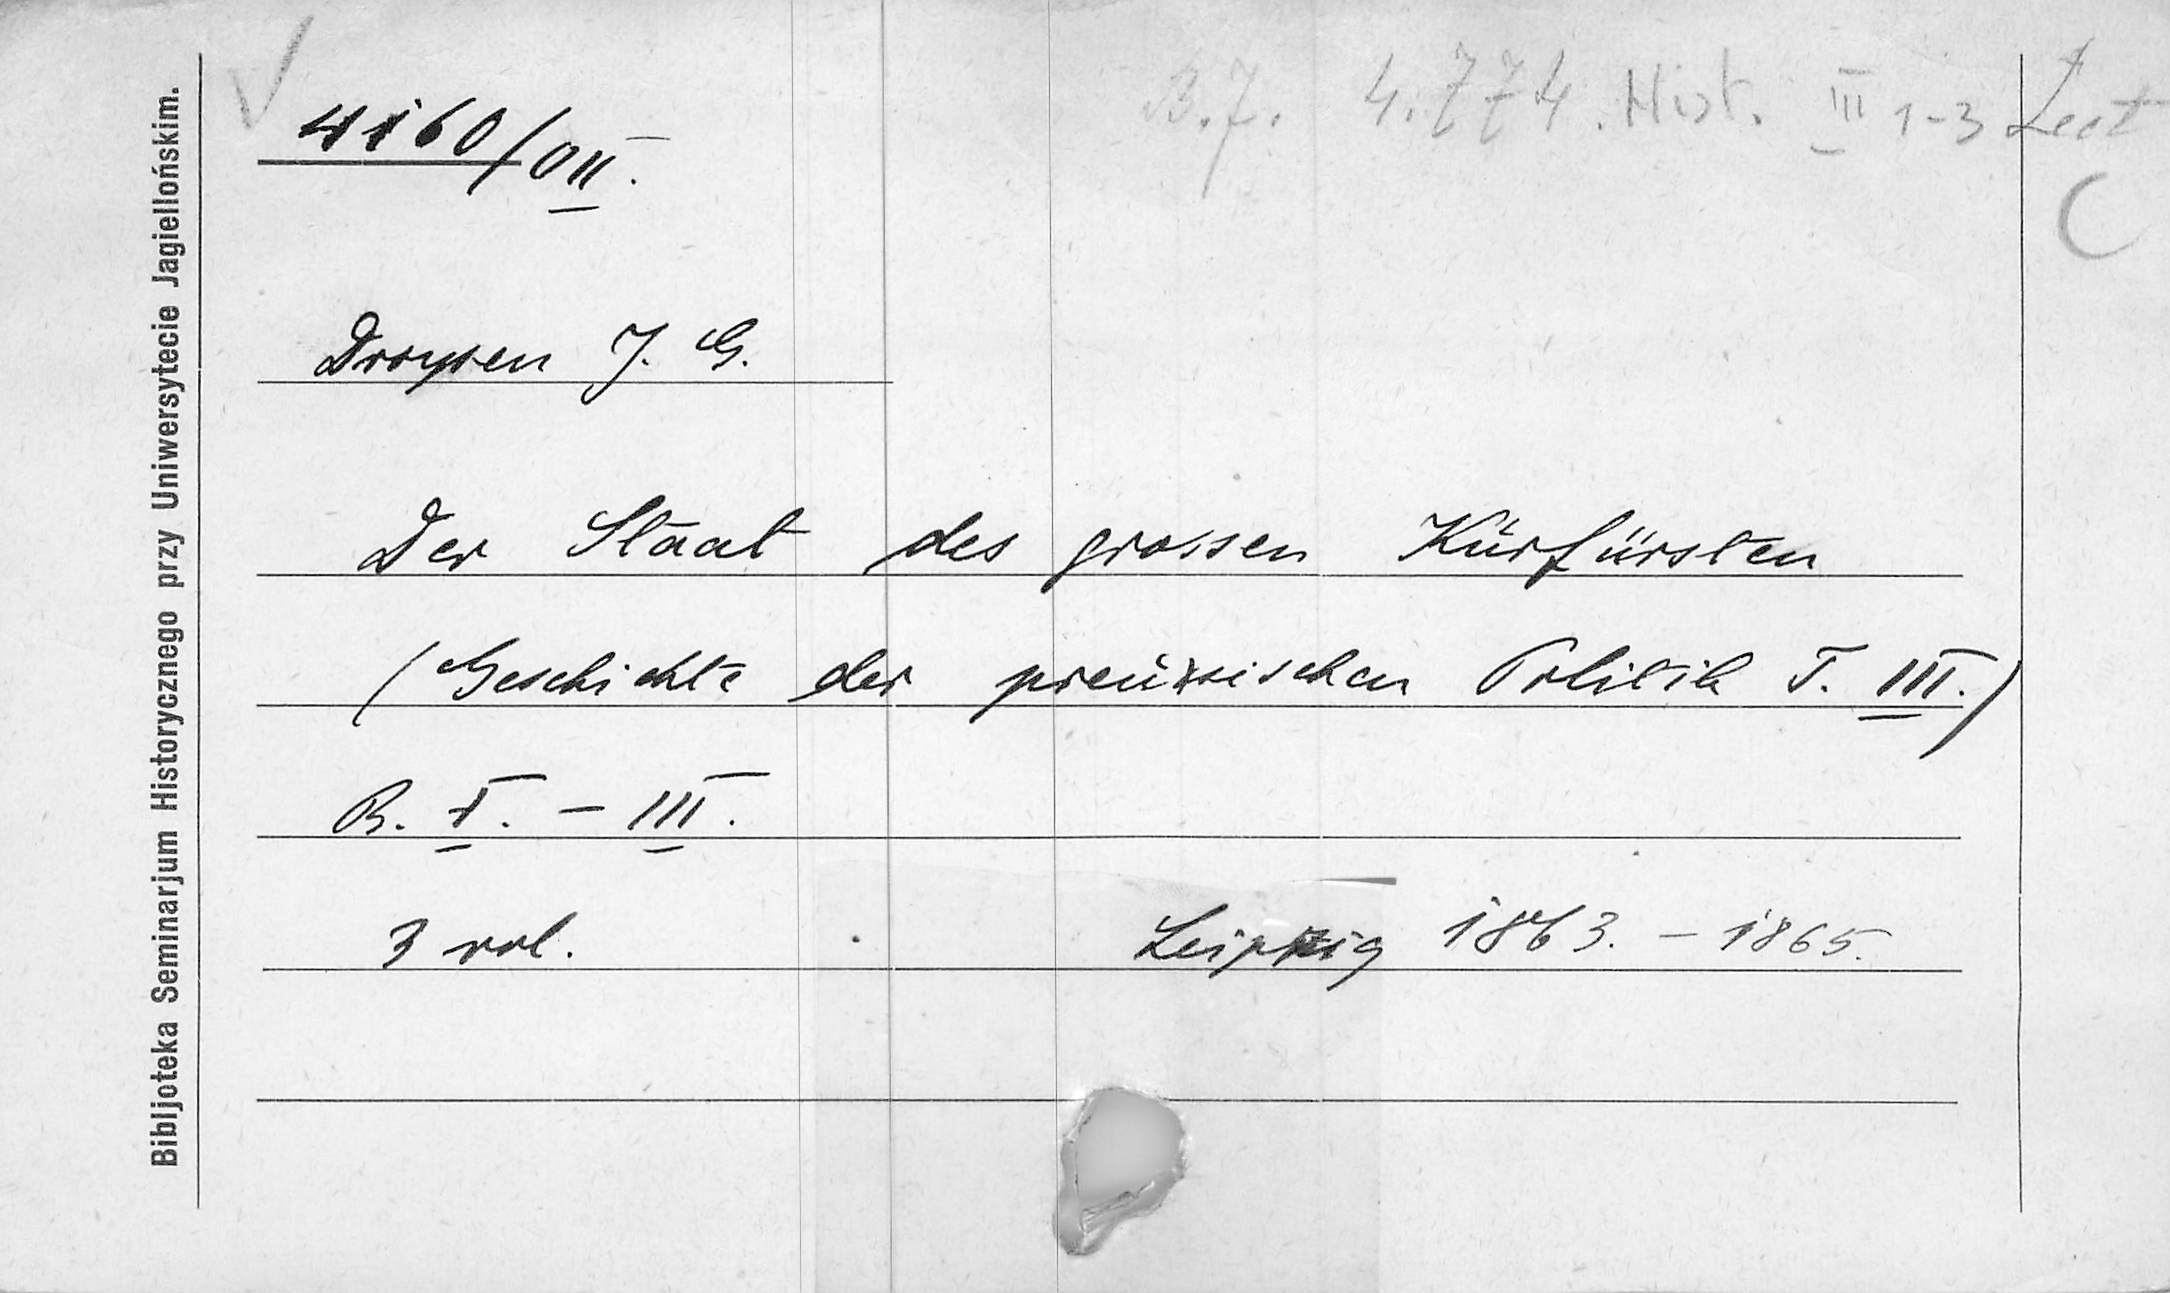 Bibljoteka Seminarjum Historycznego przy Uniwersytecie Jagiellońskim.
B.J. 4.774. Hist. III 1-3 Lect
4160/OII.
C
Droysen J. G.
Der Staat des grossen Kürfürsten
(Geschichte der preüssischen Politik T. III.)
B. I. - III.
3 vol. Leipzig 1863. - 1865.